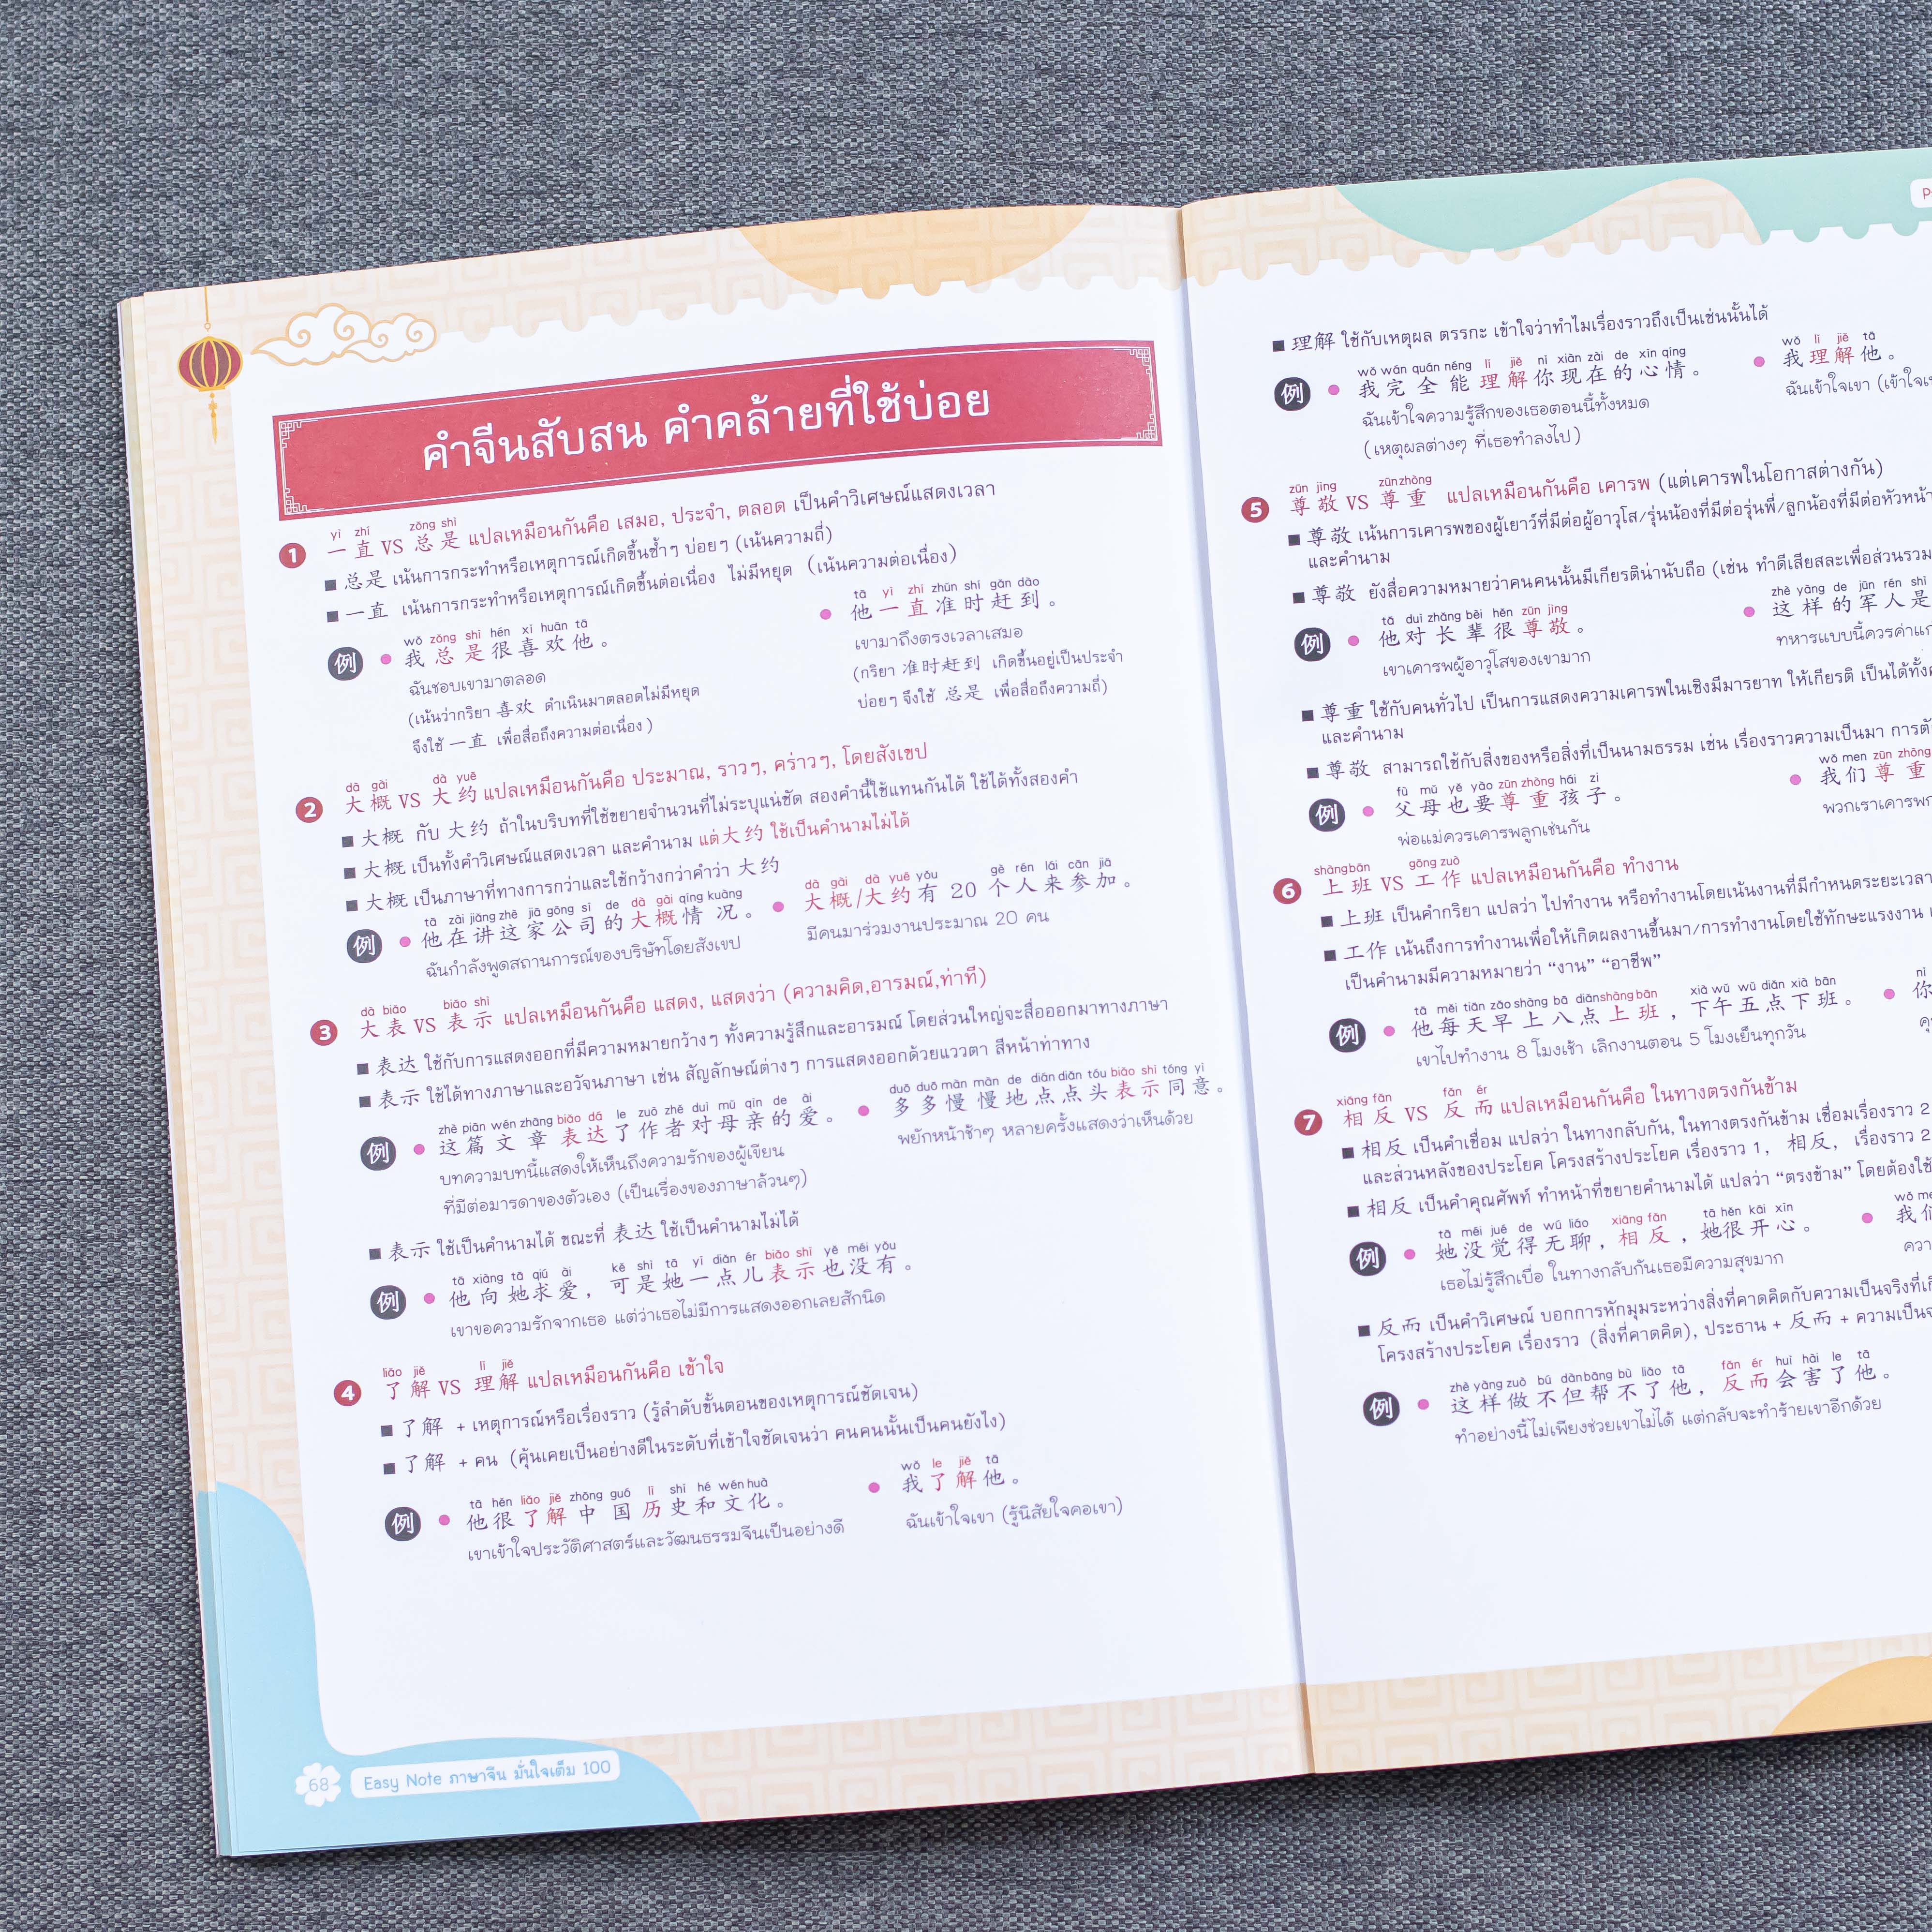 คำจีนสับสน คำคล้ายที่ใช้บ่อย
yī zhí zǒng shì
1 一直 VS 总是 แปลเหมือนกันคือ เสมอ, ประจำ, ตลอด เป็นคำวิเศษณ์แสดงเวลา
■ 总是 เน้นการกระทำหรือเหตุการณ์เกิดขึ้นซ้ำๆ บ่อยๆ (เน้นความถี่)
■ 一直 เน้นการกระทำหรือเหตุการณ์เกิดขึ้นต่อเนื่อง ไม่มีหยุด (เน้นความต่อเนื่อง)
wǒ zǒng shì hěn xǐ huān tā
例 • 我总是很喜欢他。
ฉันชอบเขามาตลอด
(เน้นว่ากริยา 喜欢 ดำเนินมาตลอดไม่มีหยุด
จึงใช้ 一直 เพื่อสื่อถึงความต่อเนื่อง )
tā yī zhí zhǔn shí gǎn dào
• 他一直准时赶到。
เขามาถึงตรงเวลาเสมอ
(กริยา 准时赶到 เกิดขึ้นอยู่เป็นประจำ
บ่อยๆ จึงใช้ 总是 เพื่อสื่อถึงความถี่)
dà gài dà yuē
2 大概 VS 大约 แปลเหมือนกันคือ ประมาณ, ราวๆ, คร่าวๆ, โดยสังเขป
■ 大概 กับ 大约 ถ้าในบริบทที่ใช้ขยายจำนวนที่ไม่ระบุแน่ชัด สองคำนี้ใช้แทนกันได้ ใช้ได้ทั้งสองคำ
■ 大概 เป็นทั้งคำวิเศษณ์แสดงเวลา และคำนาม แต่大约 ใช้เป็นคำนามไม่ได้
■ 大概 เป็นภาษาที่ทางการกว่าและใช้กว้างกว่าคำว่า 大约
tā zài jiǎng zhè jiā gōng sī de dà gài qíng kuàng
例 • 他在讲这家公司的大概情况。
ฉันกำลังพูดสถานการณ์ของบริษัทโดยสังเขป
dà gài dà yuē yǒu gè rén lái cān jiā
• 大概/大约有 20 个人来参加。
มีคนมาร่วมงานประมาณ 20 คน
dà biǎo biǎo shì
3 大表 VS 表示 แปลเหมือนกันคือ แสดง, แสดงว่า (ความคิด,อารมณ์,ท่าที)
■ 表达 ใช้กับการแสดงออกที่มีความหมายกว้างๆ ทั้งความรู้สึกและอารมณ์ โดยส่วนใหญ่จะสื่อออกมาทางภาษา
■ 表示 ใช้ได้ทางภาษาและอวัจนภาษา เช่น สัญลักษณ์ต่างๆ การแสดงออกด้วยแววตา สีหน้าท่าทาง
zhè piān wén zhāng biǎo dá le zuò zhě duì mǔ qīn de ài
例 • 这篇文章表达了作者对母亲的爱。
บทความบทนี้แสดงให้เห็นถึงความรักของผู้เขียน
ที่มีต่อมารดาของตัวเอง (เป็นเรื่องของภาษาล้วนๆ)
duō duō màn màn de diǎn diǎn tóu biǎo shì tóng yì
• 多多慢慢地点点头表示同意。
พยักหน้าช้าๆ หลายครั้งแสดงว่าเห็นด้วย
■ 表示 ใช้เป็นคำนามได้ ขณะที่ 表达 ใช้เป็นคำนามไม่ได้
tā xiàng tā qiú ài kě shì tā yī diǎn ér biǎo shì yě méi yǒu
例 • 他向她求爱，可是她一点儿表示也没有。
เขาขอความรักจากเธอ แต่ว่าเธอไม่มีการแสดงออกเลยสักนิด
liǎo jiě lǐ jiě
4 了解 VS 理解 แปลเหมือนกันคือ เข้าใจ
■ 了解 + เหตุการณ์หรือเรื่องราว (รู้ลำดับขั้นตอนของเหตุการณ์ชัดเจน)
■ 了解 + คน (คุ้นเคยเป็นอย่างดีในระดับที่เข้าใจชัดเจนว่า คนคนนั้นเป็นคนยังไง)
tā hěn liǎo jiě zhōng guó lì shǐ hé wén huà
例 • 他很了解中国历史和文化。
เขาเข้าใจประวัติศาสตร์และวัฒนธรรมจีนเป็นอย่างดี
wǒ le jiě tā
• 我了解他。
ฉันเข้าใจเขา (รู้นิสัยใจคอเขา)
68 Easy Note ภาษาจีน มั่นใจเต็ม 100
■ 理解 ใช้กับเหตุผล ตรรกะ เข้าใจว่าทำไมเรื่องราวถึงเป็นเช่นนั้นได้
wǒ wán quán néng lǐ jiě nǐ xiàn zài de xīn qíng
例 • 我完全能理解你现在的心情。
ฉันเข้าใจความรู้สึกของเธอตอนนี้ทั้งหมด
(เหตุผลต่างๆ ที่เธอทำลงไป)
wǒ lǐ jiě tā
• 我理解他。
ฉันเข้าใจเขา
zūn jìng zūn zhòng
5 尊敬 VS 尊重 แปลเหมือนกันคือ เคารพ (แต่เคารพในโอกาสต่างกัน)
■ 尊敬 เน้นการเคารพของผู้เยาว์ที่มีต่อผู้อาวุโส/รุ่นน้องที่มีต่อรุ่นพี่/ลูกน้องที่มีต่อหัวหน้า
และคำนาม
■ 尊敬 ยังสื่อความหมายว่าคนคนนั้นมีเกียรติน่านับถือ (เช่น ทำดีเสียสละเพื่อส่วนรวม
tā duì zhǎng bèi hěn zūn jìng
例 • 他对长辈很尊敬。
เขาเคารพผู้อาวุโสของเขามาก
zhè yàng de jūn rén shì
• 这样的军人是
ทหารแบบนี้ควรค่าแก่
■ 尊重 ใช้กับคนทั่วไป เป็นการแสดงความเคารพในเชิงมีมารยาท ให้เกียรติ เป็นได้ทั้ง
และคำนาม
■ 尊敬 สามารถใช้กับสิ่งของหรือสิ่งที่เป็นนามธรรม เช่น เรื่องราวความเป็นมา การ
fù mǔ yě yào zūn zhòng hái zi
例 • 父母也要尊重孩子。
พ่อแม่ควรเคารพลูกเช่นกัน
wǒ men zūn zhòng
• 我们尊重
พวกเราเคารพ
shàng bān gōng zuò
6 上班 VS 工作 แปลเหมือนกันคือ ทำงาน
■ 上班 เป็นคำกริยา แปลว่า ไปทำงาน หรือทำงานโดยเน้นงานที่มีกำหนดระยะเวลา
■ 工作 เน้นถึงการทำงานเพื่อให้เกิดผลงานขึ้นมา/การทำงานโดยใช้ทักษะแรงงาน
เป็นคำนามมีความหมายว่า “งาน” “อาชีพ”
tā měi tiān zǎo shàng bā diǎn shàng bān xià wǔ wǔ diǎn xià bān
例 • 他每天早上八点上班，下午五点下班。
เขาไปทำงาน 8 โมงเช้า เลิกงานตอน 5 โมงเย็นทุกวัน
nǐ
• 你
xiāng fǎn fǎn ér
7 相反 VS 反而 แปลเหมือนกันคือ ในทางตรงกันข้าม
■ 相反 เป็นคำเชื่อม แปลว่า ในทางกลับกัน, ในทางตรงกันข้าม เชื่อมเรื่องราว 2
และส่วนหลังของประโยค โครงสร้างประโยค เรื่องราว 1， 相反， เรื่องราว 2
■ 相反 เป็นคำคุณศัพท์ ทำหน้าที่ขยายคำนามได้ แปลว่า “ตรงข้าม” โดยต้องใช้
tā méi jué de wú liáo xiāng fǎn tā hěn kāi xīn
例 • 她没觉得无聊，相反，她很开心。
เธอไม่รู้สึกเบื่อ ในทางกลับกันเธอมีความสุขมาก
■ 反而 เป็นคำวิเศษณ์ บอกการหักมุมระหว่างสิ่งที่คาดคิดกับความเป็นจริงที่
โครงสร้างประโยค เรื่องราว (สิ่งที่คาดคิด), ประธาน + 反而 + ความเป็น
zhè yàng zuò bú dàn bāng bù liǎo tā fǎn ér huì hài le tā
例 • 这样做不但帮不了他，反而会害了他。
ทำอย่างนี้ไม่เพียงช่วยเขาไม่ได้ แต่กลับจะทำร้ายเขาอีกด้วย